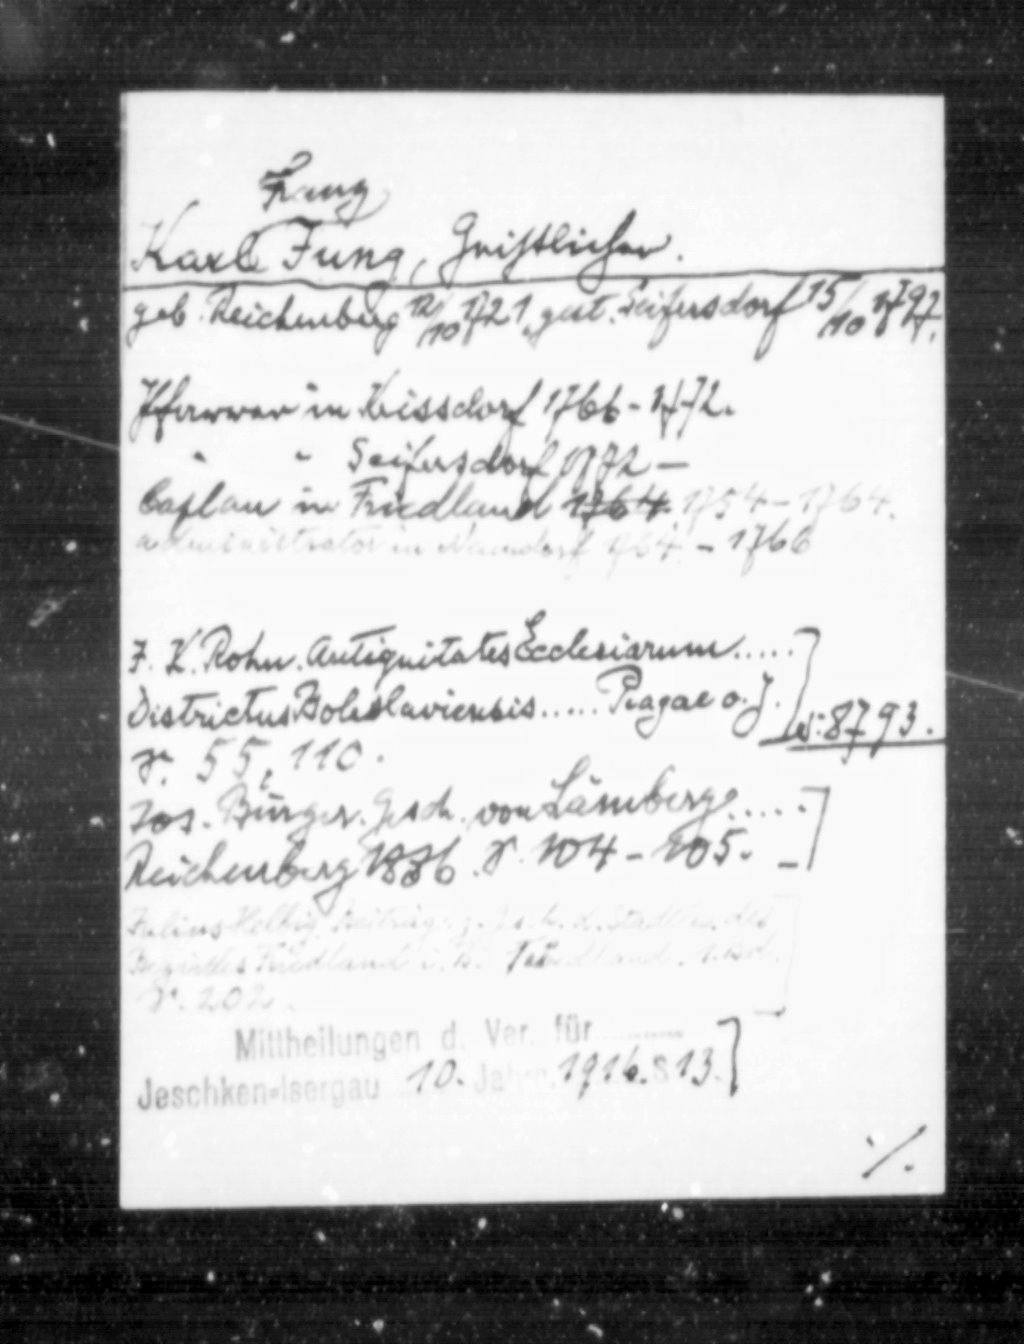 Jung
Karl Jung, Geistlicher.
geb. Reichenberg 12/10 1721, gest. Seifersdorf 15/10 1797.
Pfarrer in Krissdorf 1766-1772.
" " Seifersdorf 1772 —
Caplan in Friedland 1764 1754-1764.
Administrator in 1764 - 1766
J. K. Rohn. Antiquitates Ecclesiarum.....
Districtus Boleslaviensis..... Pragae o. J.
S. 55, 110.
S: 8793.
Jos. Bürger. Gesch. von Lämberg.....
Reichenberg 1886. S. 104-105.
Julius Helbig, Beiträge z. Gesch. d. Stadt u. des
Bezirkes Friedland i. B. Friedland. 1. Bd.
S. 202.
Mittheilungen d. Ver. für ..........
Jeschken-Isergau 10. Jahr. 1916. S 13.
%